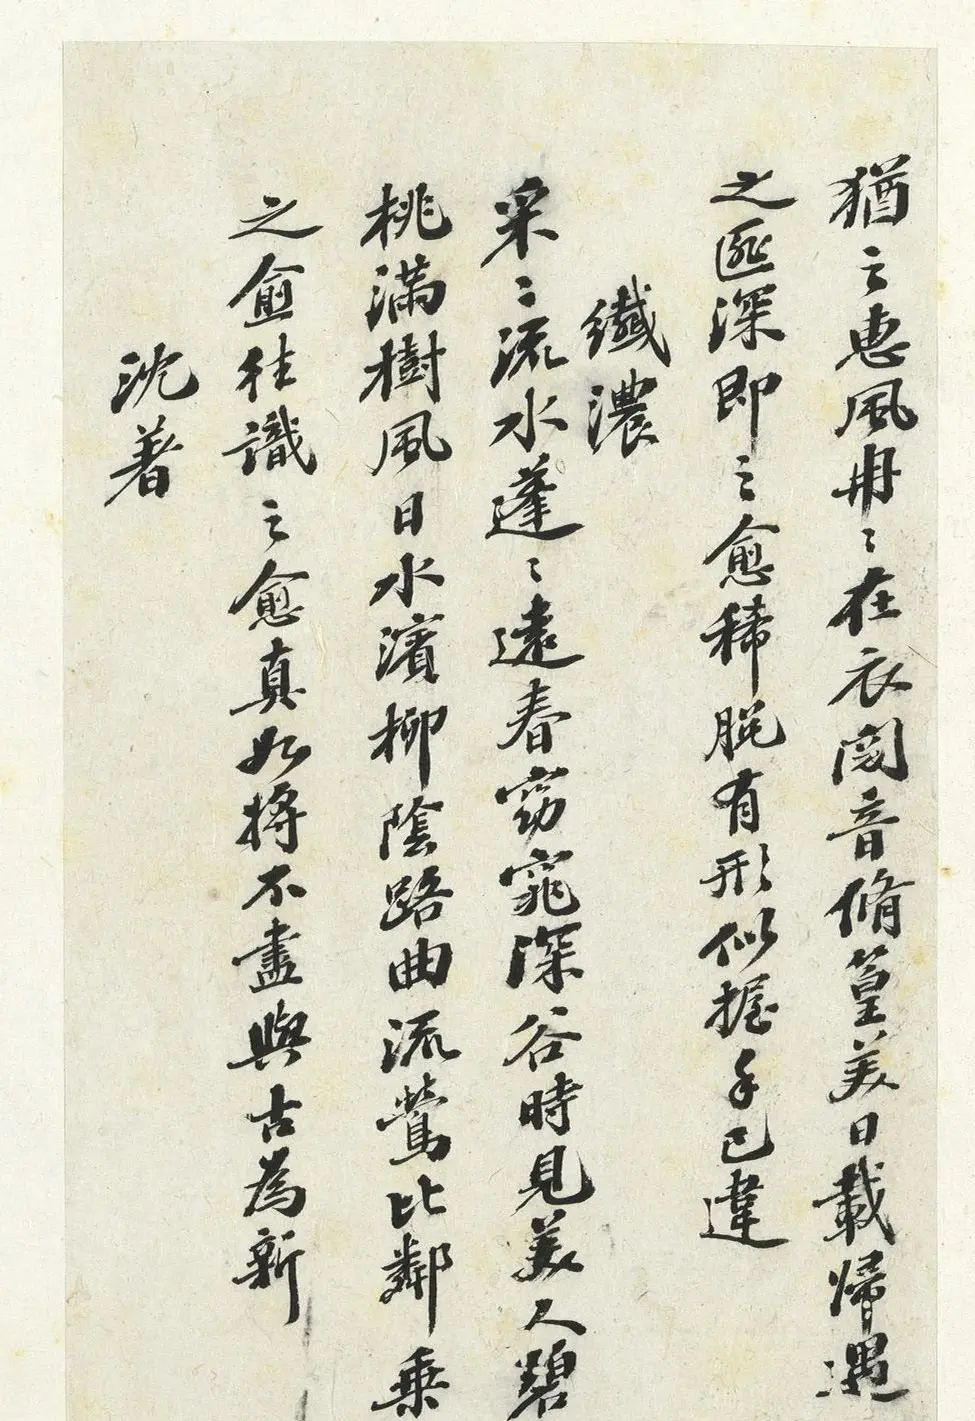 猶之惠風冉〻在衣閱音脩篁美曰載歸遇
之匪深即之愈稀脫有形似握手已違
纖濃
采〻流水蓬〻遠春窈窕深谷時見美人碧
桃滿樹風日水濱柳陰路曲流鶯比鄰乗
之愈往識之愈真如將不盡與古為新
沈著